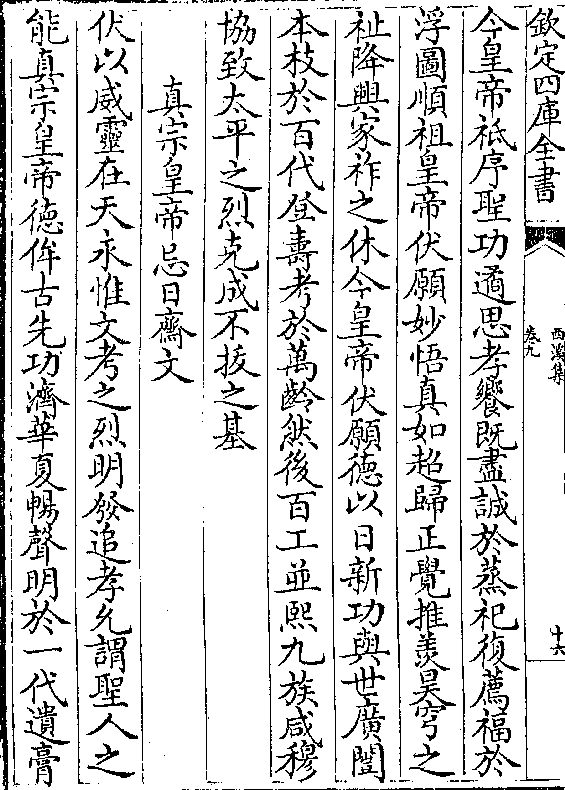 欽定四庫全書
西溪集
卷九
十六
今皇帝袛序聖功遹思孝饗既盡誠於蒸祀復薦福於
浮圖順祖皇帝伏願妙悟真如超歸正覺推羨昊穹之
祉降興家祚之休今皇帝伏願德以日新功與世廣闓
本枝於百代登壽考於萬齡然後百工並熙九族咸穆
協致太平之烈克成不拔之基
真宗皇帝忌日齋文
伏以威靈在天永惟文考之烈明發追孝允謂聖人之
能真宗皇帝德侔古先功濟華夏暢聲明於一代遺膏